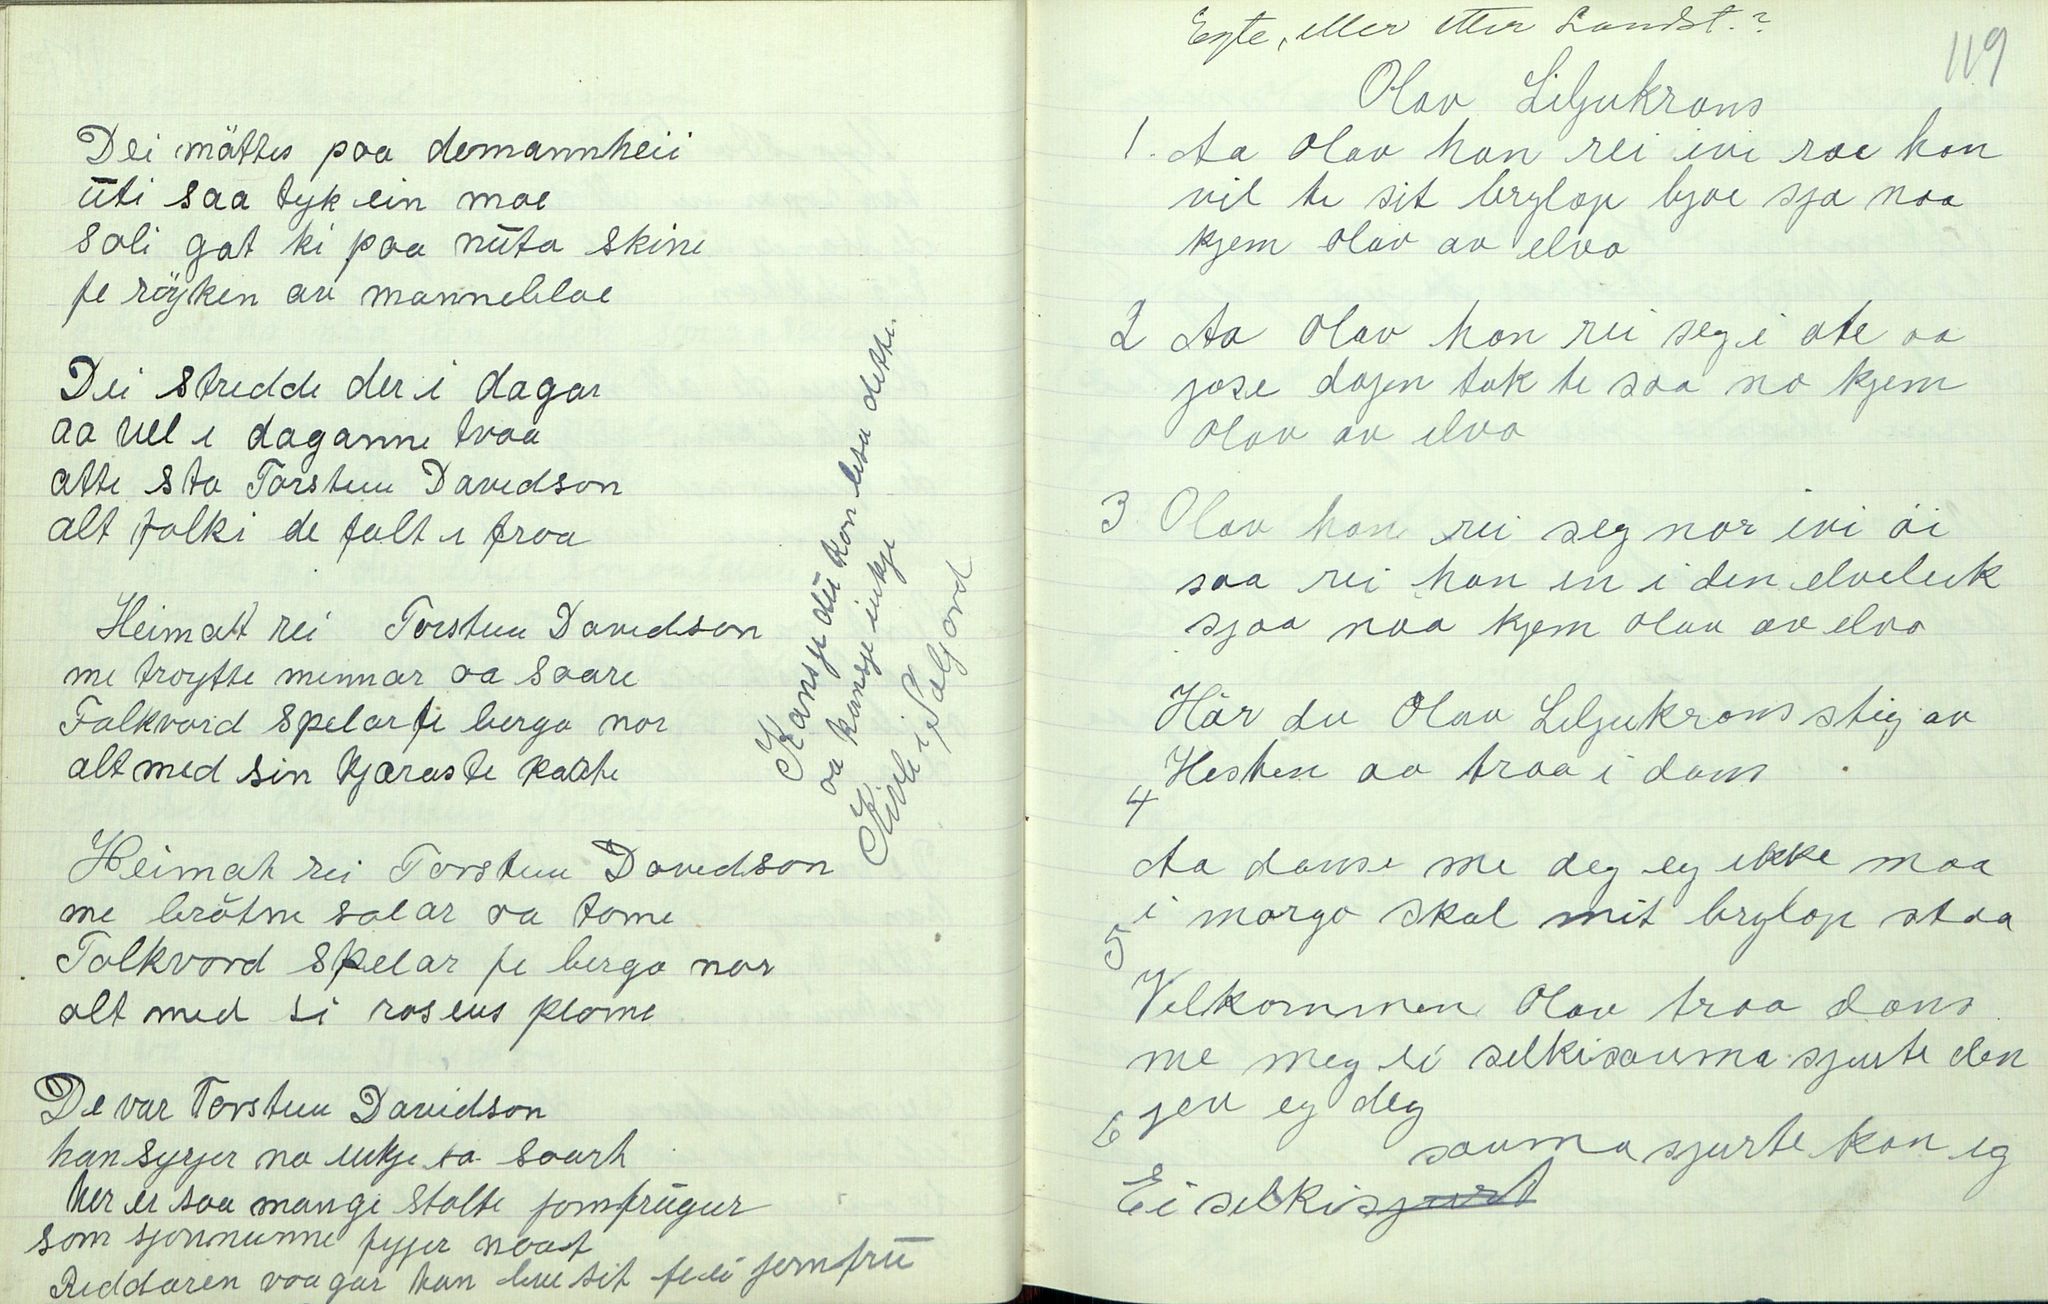 Dei mättes paa demannheii
ūti saa tyk ein moe
soli gat ki paa nūta skine
fe röyken av mannebloe
Dei stredde der i dagar
aa vel i daganne tvaa
atte sto Torsteu Davedson
alt folki de falt i fraa
Heimatt rei Torsteu Davedson
me troytte mennar oa saare
Falkvord spelar fe berga nor
alt med sin kjæraste kaate
Heimatt rei Torsteu Davedson
me brötne salar oa tome
Falkvord spelar fe berga nor
alt med si rosens plome
De var Torsteu Davidson
han syrjer no inkje sa saart
her er saa mange stolte jomfrūgur
som sjonnunne fyjer naat
Reddaren vaagar han live sit fe ei jomfrū
Kansje dū kon lesa dette
oa kansje inkje
Kivle i Seljord
Egte, eller etter Landst.?
119
Olav Liljukrans
1. Aa Olav han rei ivi roe han
vil te sit brylop bjoe sja naa
kjem olav av elvo
2 Aa Olav han rei seg i ote aa
jose dagen tok te saa no kjem
olav av elvo
3 Olav han rei seg nor ivi öi
saa rei han en i den elveleik
sjaa naa kjem olav av elvo
Här du Olav Liljukrans stig av
Hesten aa traa i dans
4
Aa danse me deg eg ikke maa
i morgo skal mit brylop staa
5
Velkommen Olav traa dans
me meg ei silkisauma sjurte den
jev eg deg
6
sauma sjurte kan eg
Ei silkisjurt